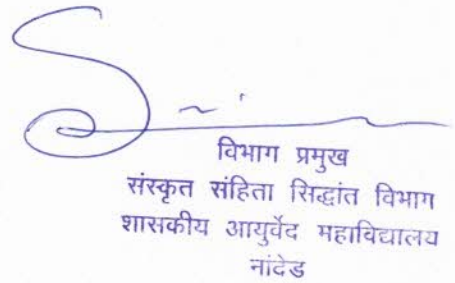 विभाग प्रमुख
संस्कृत संहिता सिद्धांत विभाग
शासकीय आयुर्वेद महाविद्यालय
नांदेड